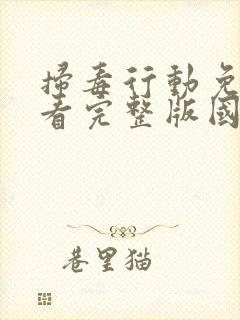 掃毒行動免
看完整版國
巷里猫